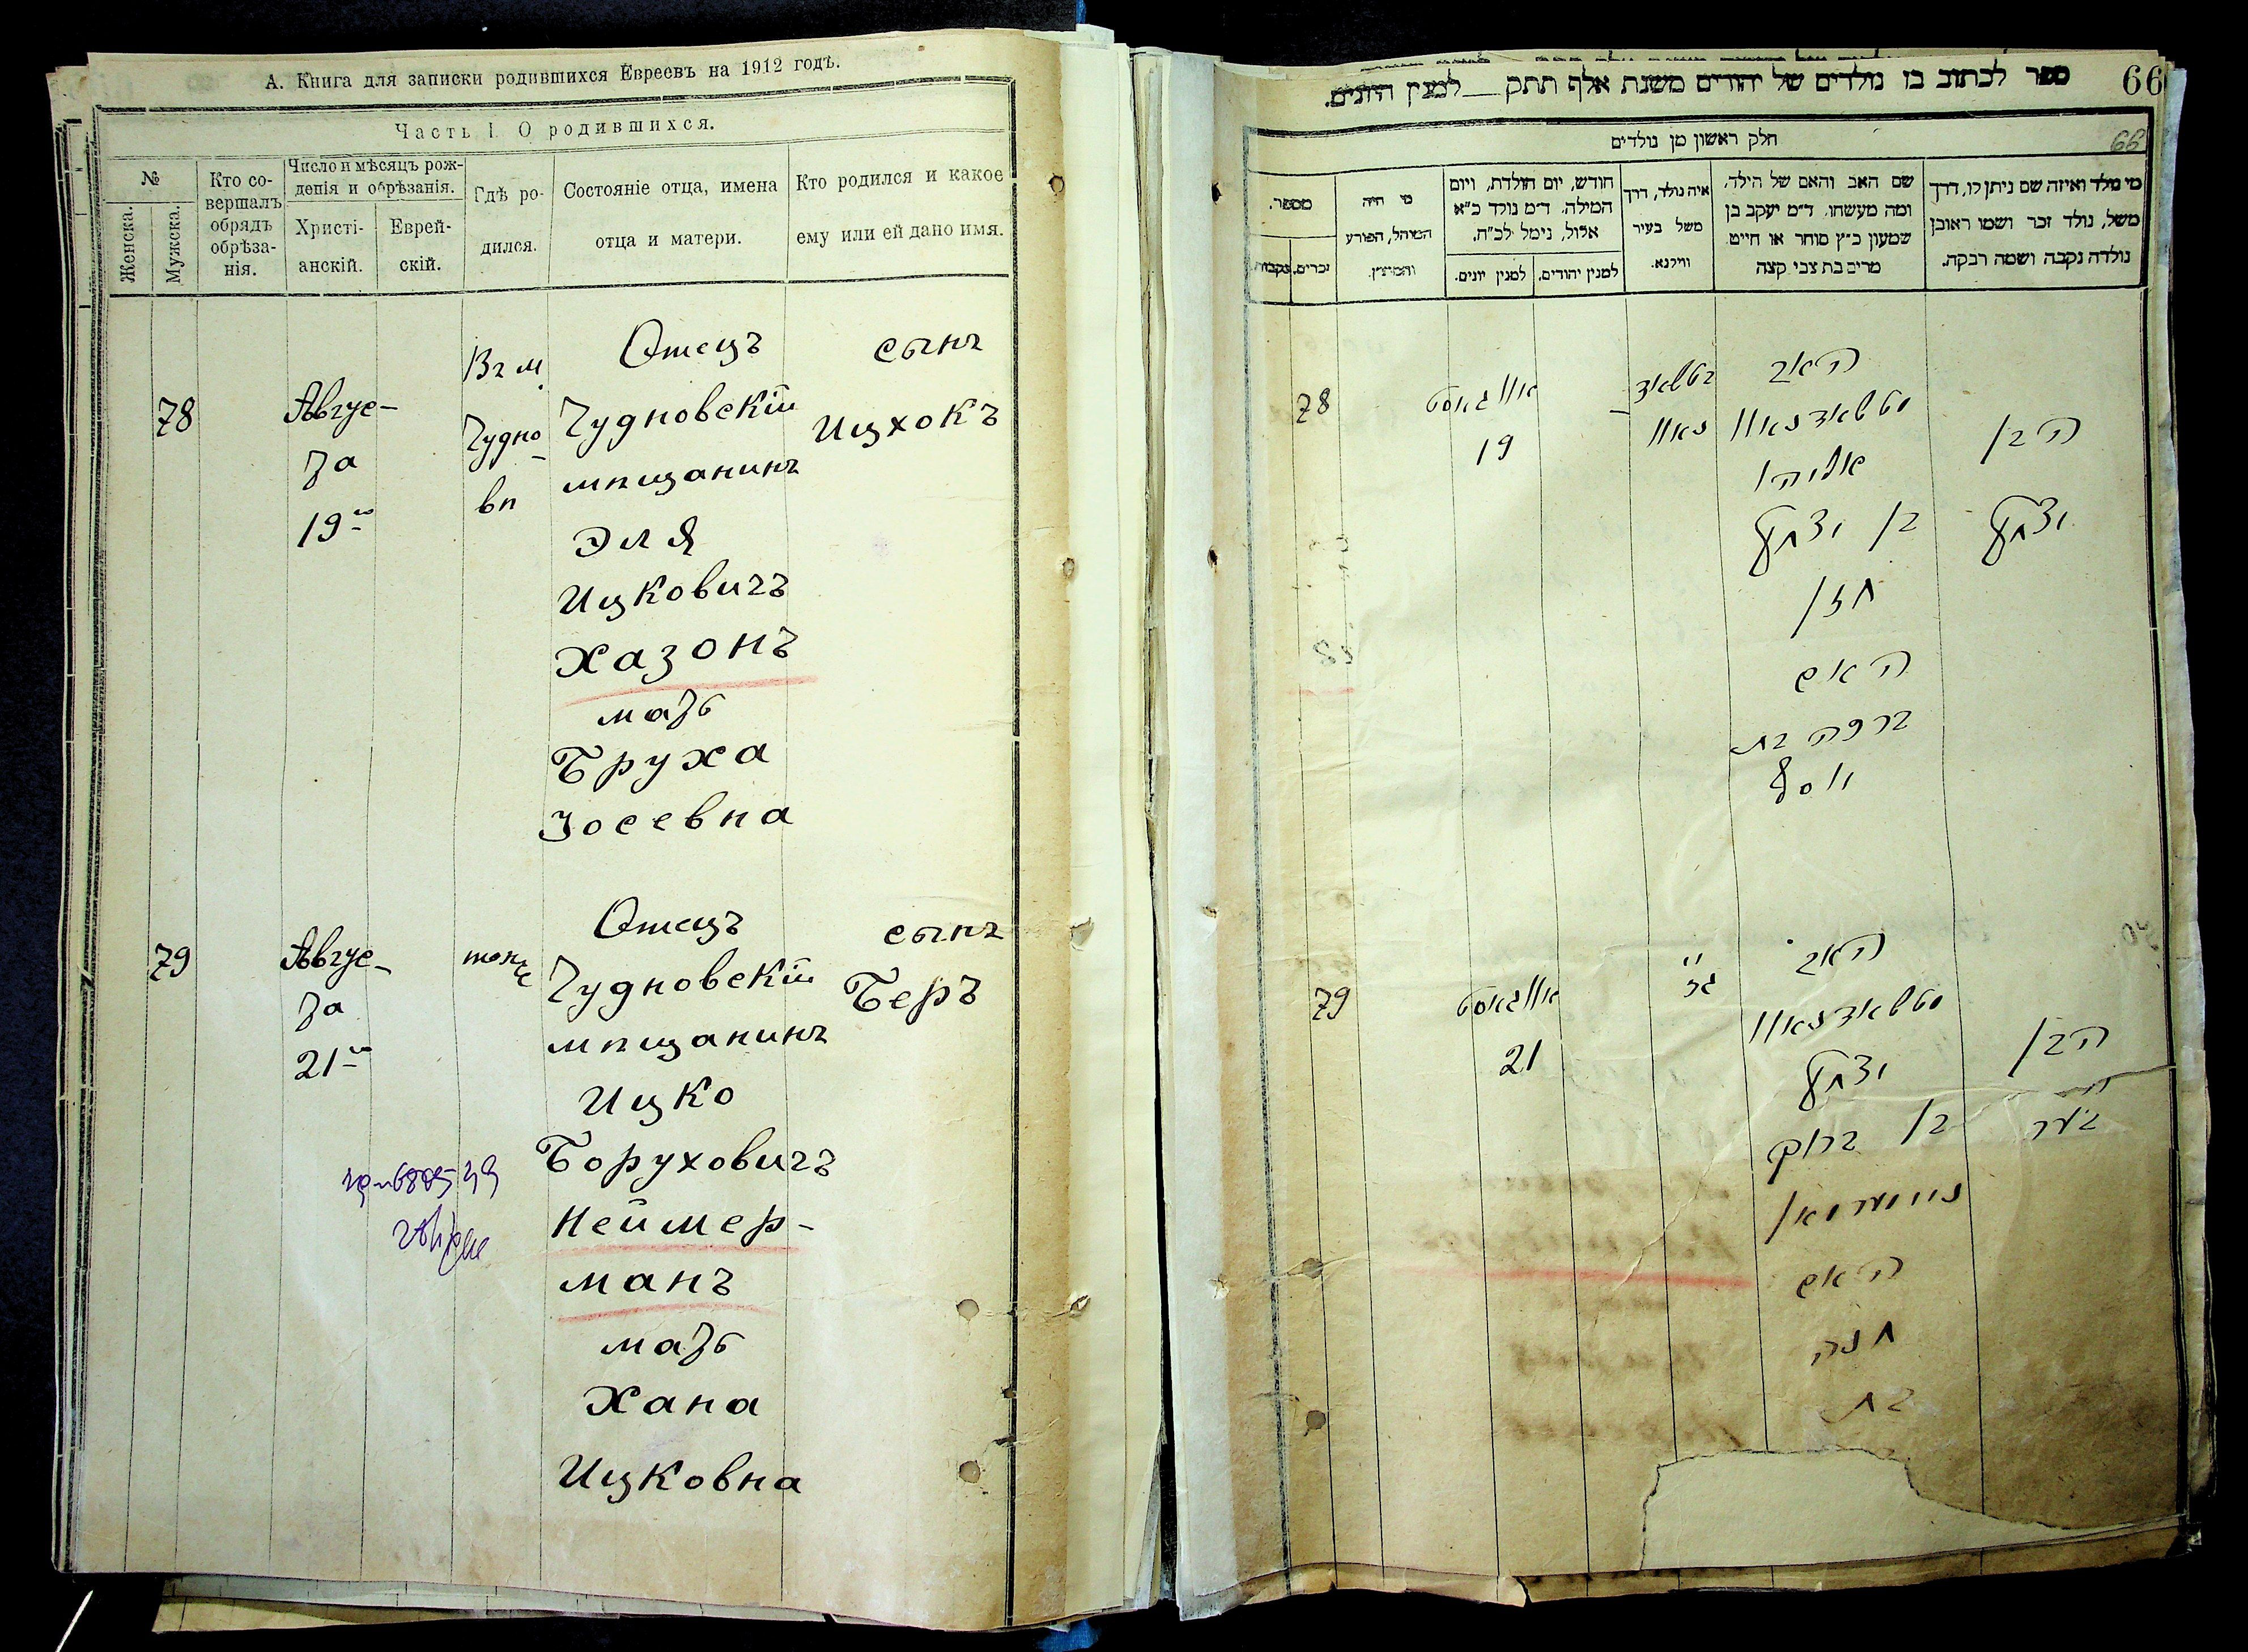 А. Книга для записки родившихся Евреевъ на 1912 годъ.
Часть I. О родившихся.
№
Женска.
Мужска.
Кто со-
вершалъ
обрядъ
обрѣза-
нія.
Число и мѣсяцъ рож-
денія и обрѣзанія.
Христі-
анскій.
Еврей-
скій.
Гдѣ ро-
дился.
Состояніе отца, имена
отца и матери.
Кто родился и какое
ему или ей дано имя.
78
Авгус-
та
19го
Въ м.
Чудно-
вѣ
Отецъ
Чудновскій
мѣщанинъ
Эля
Ицковичъ
Хазонъ
мать
Бруха
Іосевна
сынъ
Ицхокъ
79
Авгус-
та
21го
тоже
Отецъ
Чудновскій
мѣщанинъ
Ицко
Боруховичъ
Неймер-
манъ
мать
Хана
Ицковна
сынъ
Беръ
66
ספר לכתוב בו נולדים של יהודים משנת אלף תתק __ למנין היונים.
66
חלק ראשון מן נולדים
מספר.
זכרים.
נקבות.
מי היה
המוהל, הפורע
והמוצץ.
חודש, יום תולדת, ויום
המילה. ד״מ נולד כ״א
אלול, נימל לכ״ח.
למנין יהודים.
למנין יונים.
איה נולד, דרך
משל בעיר
ווילנא.
שם האב והאם של הילד,
ומה מעשהו. ד״מ יעקב בן
שמעון כ״ץ סוחר או חייט
מרים בת צבי קצה
מי נולד ואיזה שם ניתן לו, דרך
משל, נולד זכר ושמו ראובן
נולדה נקבה ושמה רבקה.
78
אווגאסט
19
האב
אליהו
בן יצחק
חזן
האם
ברכה בת
יוסף
הבן
יצחק
79
אווגאסט
21
האב
יצחק
בן ברוך
ניימערמאן
האם
חנה
בת
הבן
בער